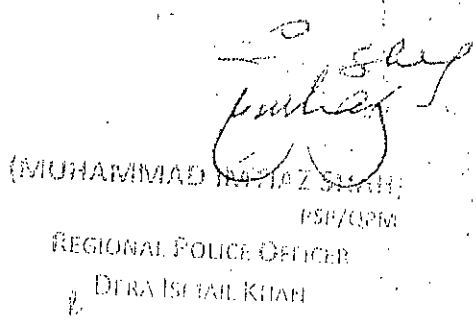 (MUHAMMAD IMTIAZ SHAH)
PSP/QPM
REGIONAL POLICE OFFICER
DERA ISMAIL KHAN